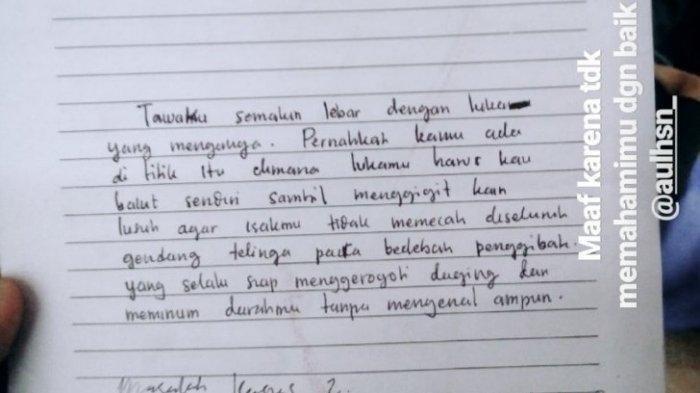 Tawaku semakin lebar dengan luka
yang menganga. Pernahkah kamu ada
di titik itu dimana lukamu harus kau
balut sendiri sambil menggigit kain
lusuh agar isakmu tidak memecah diseluruh
gendang telinga para bedebah penggibah.
yang selalu siap menggerogoti daging dan
meminum darahmu tanpa mengenal ampun.
Maaf karena tdk
memahamimu dgn baik
@aulhsn_